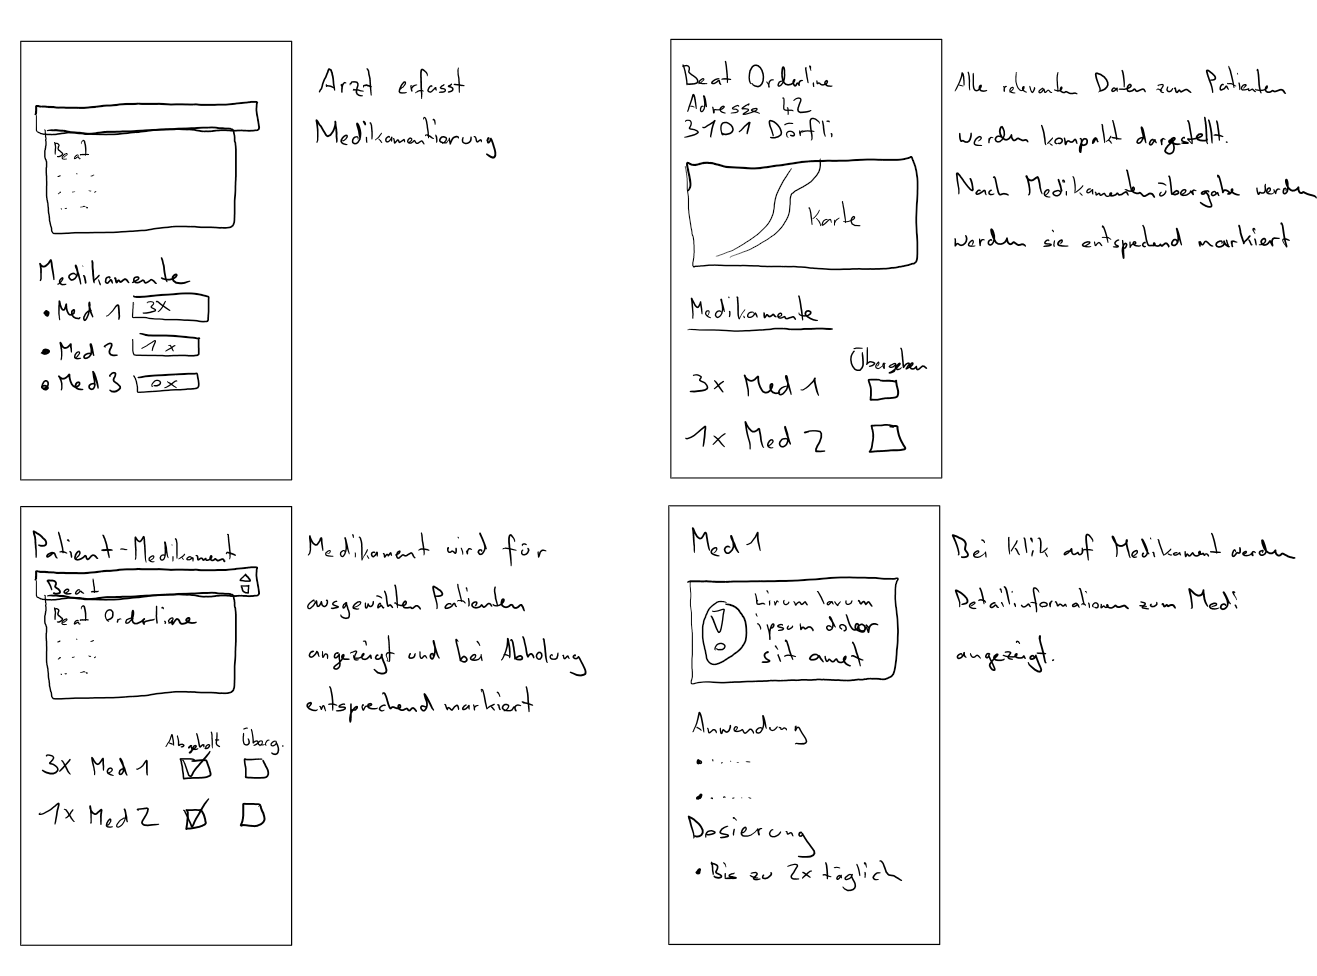 Beat
Medikamente
• Med 1 3x
• Med 2 1x
• Med 3 0x
Arzt erfasst
Medikamentierung
Beat Orderline
Adresse 42
3101 Dörfli
Karte
Medikamente
Übergeben
3x Med 1
1x Med 2
Alle relevanten Daten zum Patienten
werden kompakt dargestellt.
Nach Medikamentenübergabe werden
werden sie entsprechend markiert
Patient-Medikament
Beat
Beat Orderline
Abgeholt Überg.
3x Med 1
1x Med 2
Medikament wird für
ausgewählten Patienten
angezeigt und bei Abholung
entsprechend markiert
Med 1
Lirum larum
ipsum dolor
sit amet
Anwendung
Dosierung
• Bis zu 2x täglich
Bei Klik auf Medikament werden
Detailinformationen zum Medi
angezeigt.